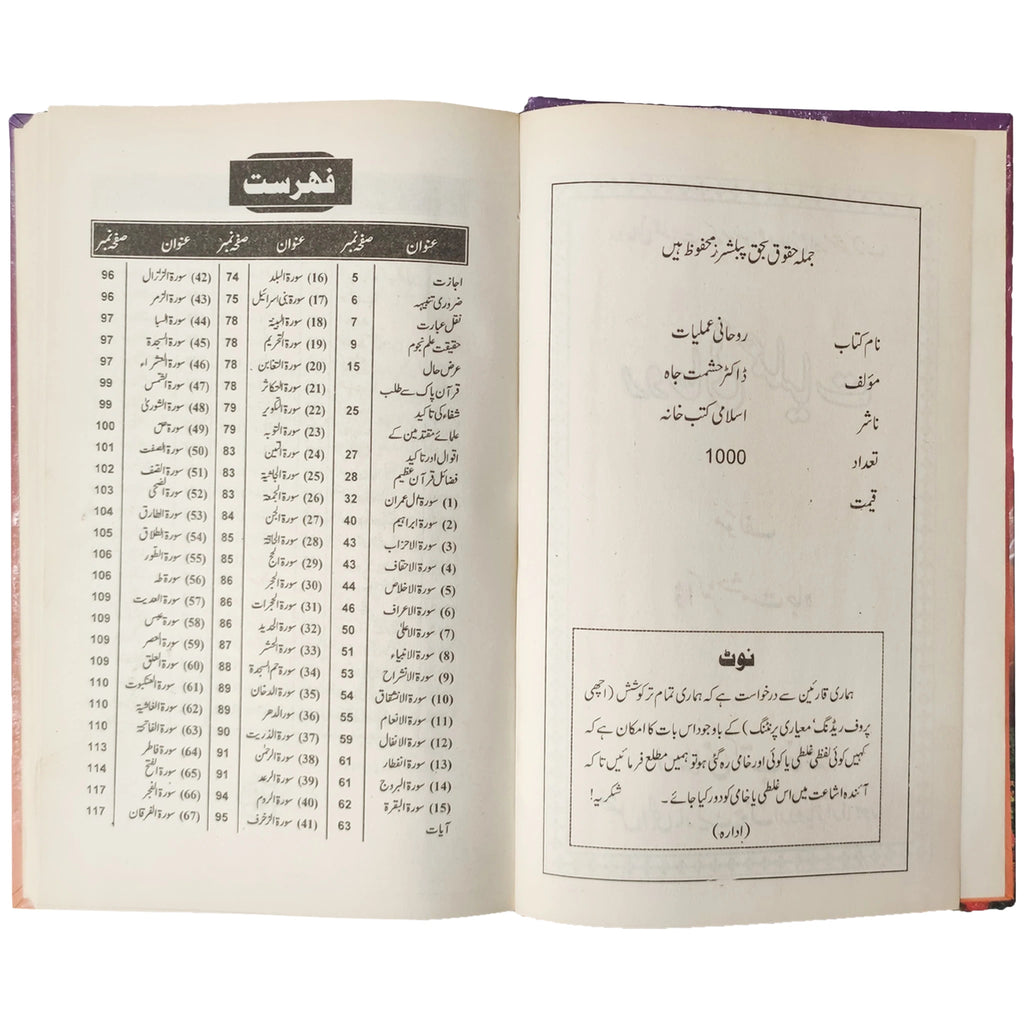 جملہ حقوق بحق پبلشرز محفوظ ہیں
نام کتاب روحانی عملیات
مؤلف ڈاکٹر حشمت جاہ
ناشر اسلامی کتب خانہ
تعداد 1000
قیمت
نوٹ
ہماری قارئین سے درخواست ہے کہ ہماری تمام تر کوشش (اچھی
پروف ریڈنگ، معیاری پرنٹنگ) کے باوجود اس بات کا امکان ہے کہ
کہیں کوئی لفظی غلطی یا کوئی اور خامی رہ گئی ہو تو ہمیں مطلع فرمائیں تاکہ
آئندہ اشاعت میں اس غلطی یا خامی کو دور کیا جائے۔ شکریہ!
(ادارہ)
فہرست
عنوان صفحہ نمبر عنوان صفحہ نمبر عنوان صفحہ نمبر
اجازت 5
ضروری تنبیہہ 6
نقل عبارت 7
حقیقت علم نجوم 9
عرض حال 15
قرآن پاک سے طلب
شفاء کی تاکید 25
علمائے متقدمین کے
اقوال اور تاکید 27
فضائل قرآن عظیم 28
(1) سورۃ ال عمران 32
(2) سورۃ ابراہیم 40
(3) سورۃ الاحزاب 43
(4) سورۃ الاحقاف 43
(5) سورۃ الاخلاص 44
(6) سورۃ الاعراف 46
(7) سورۃ الاعلیٰ 50
(8) سورۃ الانبیاء 51
(9) سورۃ الانشراح 53
(10) سورۃ الانشقاق 54
(11) سورۃ الانعام 55
(12) سورۃ الانفال 59
(13) سورۃ انفطار 61
(14) سورۃ البروج 61
(15) سورۃ البقرۃ 62
آیات 63
(16) سورۃ البلد 74
(17) سورۃ بنی اسرائیل 75
(18) سورۃ البینۃ 78
(19) سورۃ التحریم 78
(20) سورۃ التغابن 78
(21) سورۃ التکاثر 78
(22) سورۃ التکویر 79
(23) سورۃ التوبہ 79
(24) سورۃ التین 83
(25) سورۃ الجاثیۃ 83
(26) سورۃ الجمعۃ 83
(27) سورۃ الجن 84
(28) سورۃ الحاقۃ 85
(29) سورۃ الحج 85
(30) سورۃ الحجر 86
(31) سورۃ الحجرات 86
(32) سورۃ الحدید 86
(33) سورۃ الحشر 87
(34) سورۃ حم السجدۃ 88
(35) سورۃ الدخان 89
(36) سورالدھر 89
(37) سورۃ الذریت 90
(38) سورۃ الرحمٰن 91
(39) سورۃ الرعد 91
(40) سورۃ الروم 94
(41) سورۃ الزخرف 95
(42) سورۃ الزلزال 96
(43) سورۃ الزمر 96
(44) سورۃ السبا 97
(45) سورۃ السجدۃ 97
(46) سورۃ الشعراء 97
(47) سورۃ الشمس 99
(48) سورۃ الشوریٰ 99
(49) سورۃ ص 100
(50) سورۃ الصفت 101
(51) سورۃ الصف 102
(52) سورۃ الضحیٰ 103
(53) سورۃ الطارق 104
(54) سورۃ الطلاق 105
(55) سورۃ الطور 106
(56) سورۃ طہ 106
(57) سورۃ العدیت 109
(58) سورۃ عبس 109
(59) سورۃ العصر 109
(60) سورۃ العلق 109
(61) سورۃ العنکبوت 110
(62) سورۃ الغاشیۃ 110
(63) سورۃ الفاتحۃ 110
(64) سورۃ فاطر 113
(65) سورۃ الفتح 114
(66) سورۃ الفجر 117
(67) سورۃ الفرقان 117